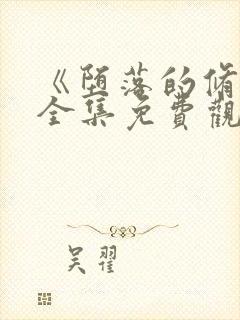 《堕落的脩
全集免費觀
吴翟